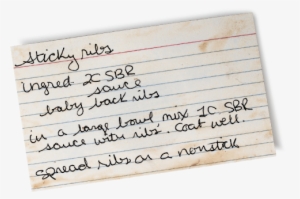 sticky ribs
ingred 2C SBR
sauce
baby back ribs
in a large bowl mix 1C SBR
sauce with ribs. Coat well.
Spread ribs on a nonstick